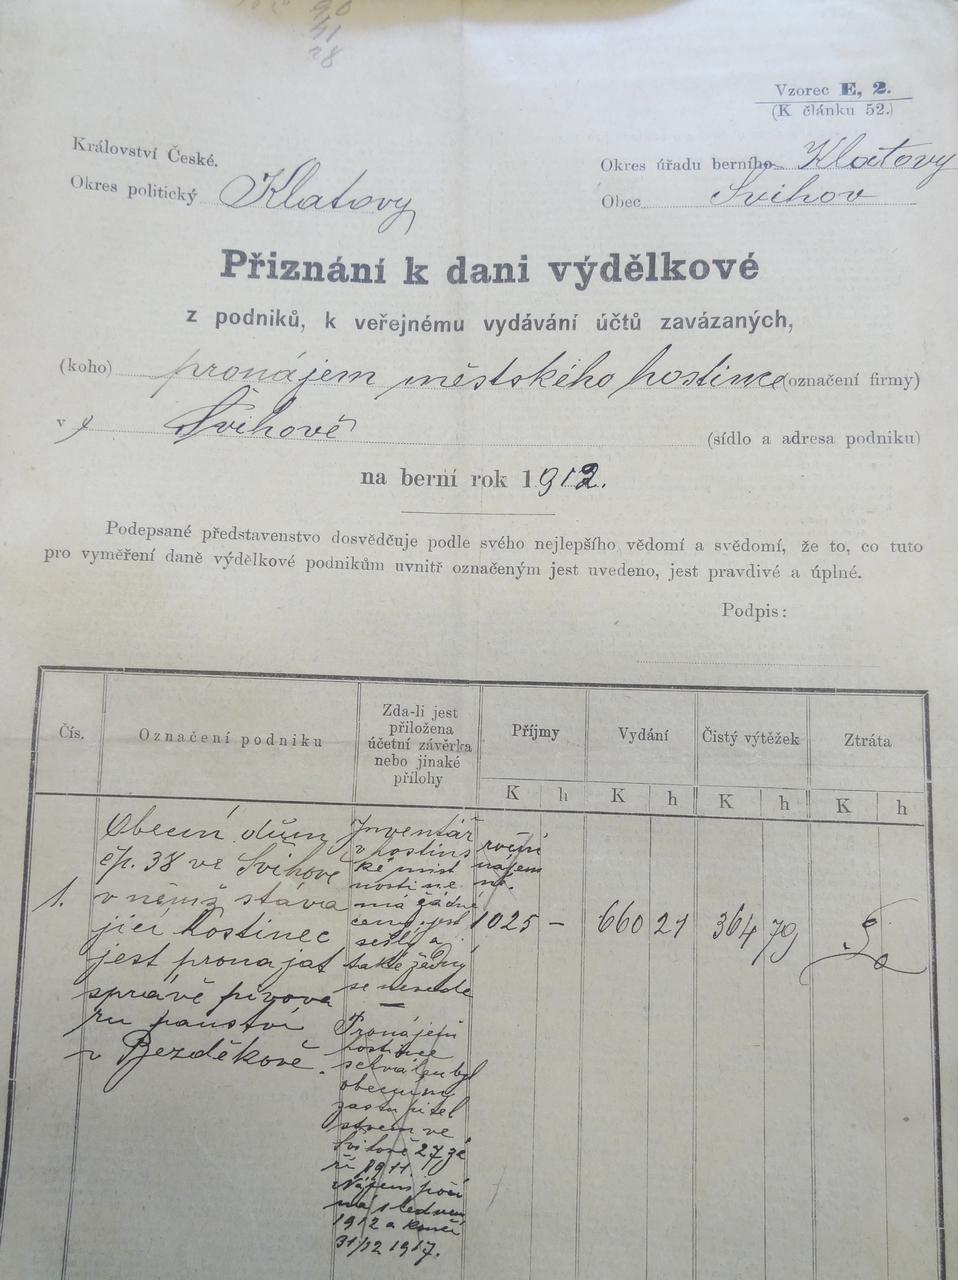 90
41
28
Vzorec E, 2.
(K článku 52.)
Království České.
Okres politický Klatovy
Okres úřadu berního Klatovy
Obec Švihov
Přiznání k dani výdělkové
z podniků, k veřejnému vydávání účtů zavázaných,
(koho) pronájem městského hostince (označení firmy)
v Švihově (sídlo a adresa podniku)
na berní rok 1912.
Podepsané představenstvo dosvědčuje podle svého nejlepšího vědomí a svědomí, že to, co tuto
pro vyměření daně výdělkové podnikům uvnitř označeným jest uvedeno, jest pravdivé a úplné.
Podpis:
Čís.
Označení podniku
Zda-li jest
přiložena
účetní závěrka
nebo jinaké
přílohy
Příjmy
Vydání
Čistý výtěžek
Ztráta
K h K h K h K h
1.
Obecní dům
čp. 38 ve Švihově
v němž stáva
jící hostinec
jest pronajat
správě pivova
ru panství
v Bezděkově.
Inventář
v hostins
ké míst
nosti ne
má žádné
ceny, jest
sešlý a
také žádný
se nevede
—
Pronájem
hostince
schválen byl
obecním
zastupitel
stvem ve
Švihově 27 zá
ří 1911.
Nájem počí
ná 1 lednem
1912 a končí
31/12 1917.
roční
nájem
né.
1025 —
660 21
364 79